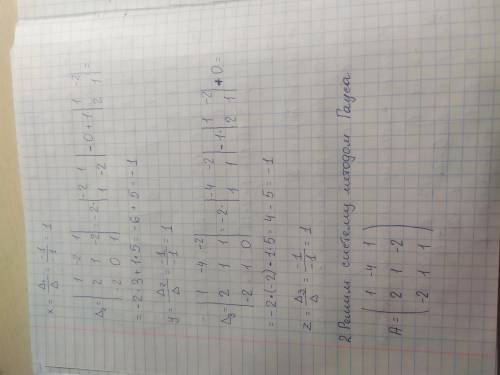 x = Δ₁/Δ = -1/-1 = 1
Δ₂ = | 1 -2 1 |
| 2 1 -2 | = -2·| -2 1 | - 0 + 1 | 1 -2 | =
| -2 0 1 | | 1 -2 | | 2 1 |
= -2·3 + 1·5 = -6 + 5 = -1
y = Δ₂/Δ = -1/-1 = 1
| 1 -4 -2 |
Δ₃ = | 2 1 1 | = -2·| -4 -2 | - 1·| 1 -2 | + 0 =
| -2 1 0 | | 1 1 | | 2 1 |
= -2·(-2) - 1·5 = 4 - 5 = -1
z = Δ₃/Δ = -1/-1 = 1
2 Решим систему методом Гауса
( 1 -4 1 )
A = ( 2 1 -2 )
( -2 1 1 )